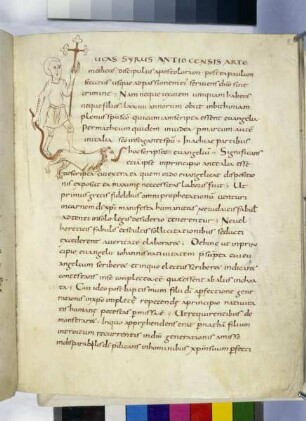 UCAS SYRUS ANTIOCENSIS ARTE
medicus discipulus apostolorum postea paulum
secutus usque ad passionem eius serviens dno sine
crimine Nam neque uxorem umquam habens
neque filios lxxiiii annorum obiit in bithinia
plenus spu sco quia iam scripta essent evangelia
per matheum quidem in iudea per marcum autem
in italia sco instigante spu In achaiae partibus
hoc scripsit evangelium Significans
etiam ipse in principio ante alia esse
descripta cui extra ea quae ordo evangelicae dispositio
nis exposcit ea maxime necessitas laboris fuit Ut
primum grecis fidelibus omni prophetatione venturi
in carnem di xpi manifesta humanitas ne iudaicis fabulis
adtenti in solo legis desiderio tenerentur Ne vel
hereticis fabulis et stultis sollicitationibus seducti
excederent a veritate elaboraret Dehinc ut in prin
cipio evangelii iohannis nativitate presumpta cui eu
angelium scriberet et in quo electus scriberet indicaret
contestans in se completa esse quae essent ab aliis inchoa
ta Cui ideo post baptismum filii di a perfectione gene
rationis in xpo impletae repetendae a principio nativita
tis humanae potestas permissa Ut requirentibus de
monstraret In quo apprehendens erat per nathan filium
introitu recurrentis in dm generationis admisso
indisparabilis di predicans in hominibus xpm suum perfecti